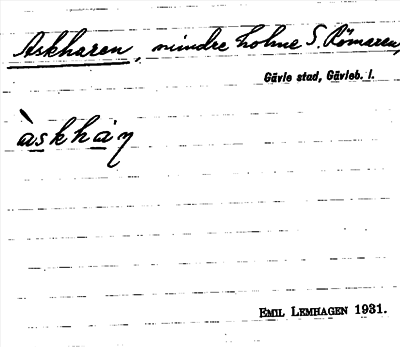 Askharen, mindre holme S. Römaren,
Gävle stad, Gävleb. l.
àskhàη
EMIL LEMHAGEN 1931.